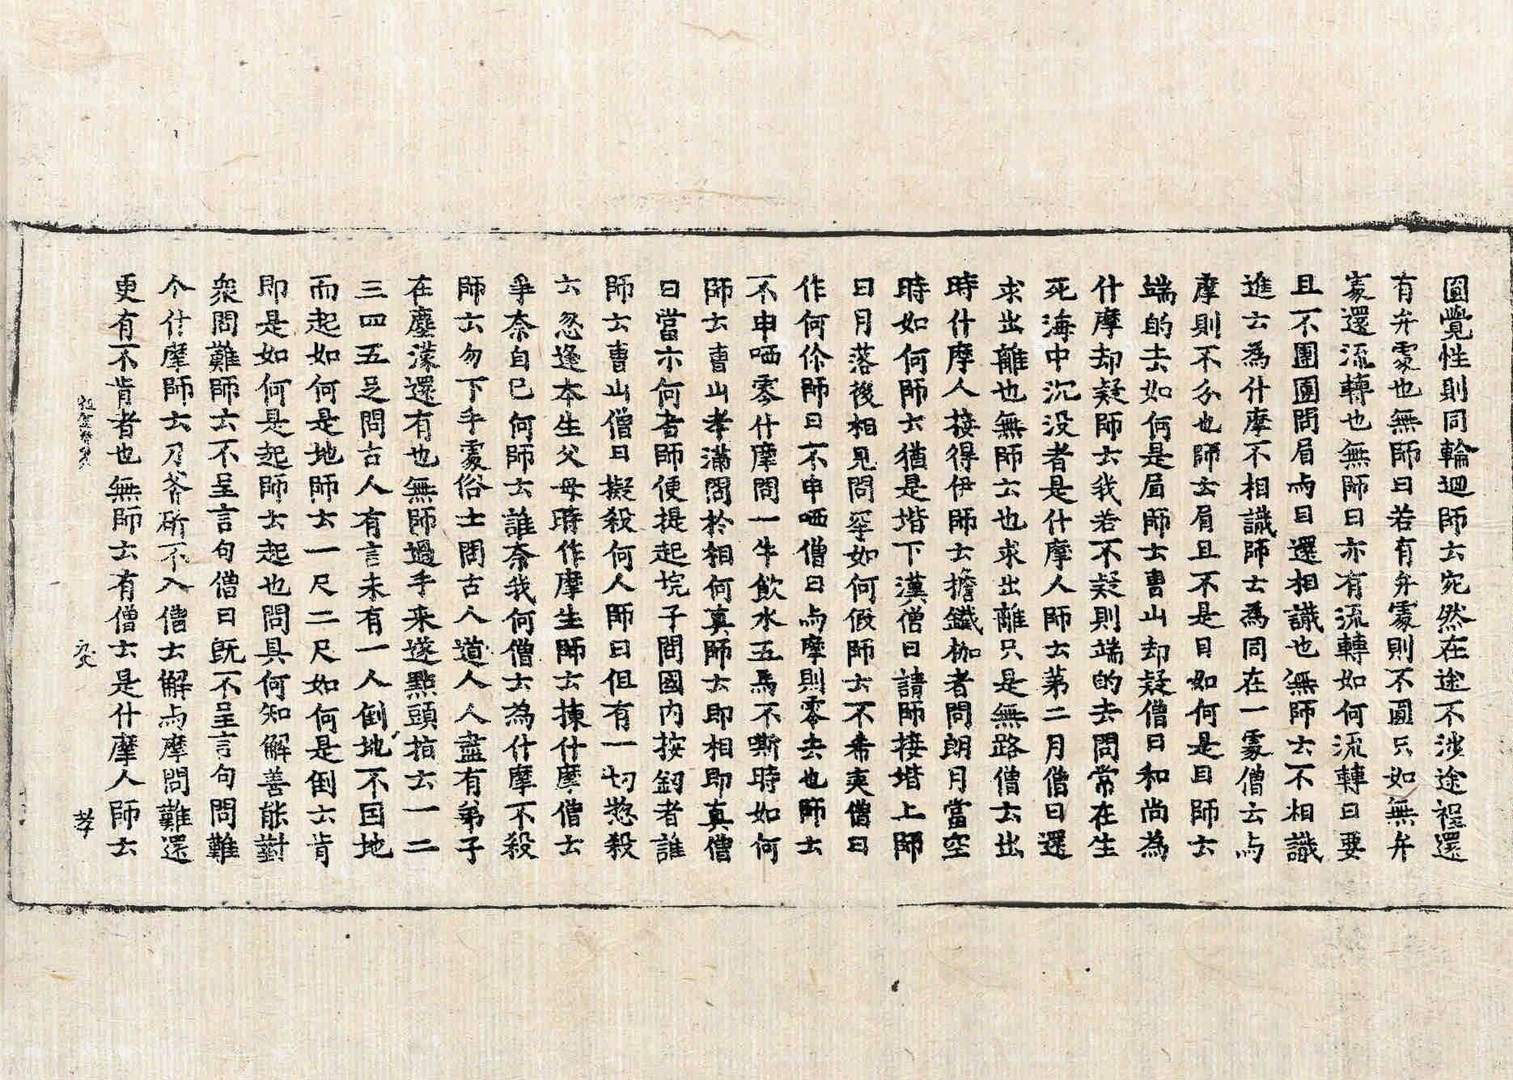 圎覺性則同輪迴師云宛然在途不涉途程還
有弁處也無師曰若有弁處則不圓只如無弁
處還流轉也無師曰亦有流轉如何流轉曰要
且不團圎問眉與目還相識也無師云不相識
進云為什摩不相識師云為同在一處僧云与
摩則不分也師云眉且不是目如何是目師云
端的去如何是眉師云曹山却疑僧曰和尚為
什摩却疑師云我若不疑則端的去問常在生
死海中沉没者是什摩人師云第二月僧曰還
求出離也無師云也求出離只是無路僧云出
時什摩人接得伊師云擔鐵枷者問朗月當空
時如何師云猶是堦下漢僧曰請師接堦上師
曰月落後相見問罕如何假師云不希奕僧曰
作何伱師曰不申哂僧曰与摩則零去也師云
不申哂零什摩問一牛飲水五馬不嘶時如何
師云曹山孝滿問於相何真師云即相即真僧
曰當亦何者師便提起垸子問國内按釰者誰
師云曹山僧曰擬殺何人師曰但有一切惣殺
云忽逢本生父母時作摩生師云揀什摩僧云
爭奈自已何師云誰奈我何僧云為什摩不殺
師云勿下手處俗士問古人道人人盡有弟子
在塵濛還有也無師過手来遂點頭指云一二
三四五足問古人有言未有一人倒地不因地
而起如何是地師云一尺二尺如何是倒云肯
即是如何是起師云起也問具何知解善能對
衆問難師云不呈言句僧曰既不呈言句問難
个什摩師云刀斧斫不入僧云解与摩問難還
更有不肯者也無師云有僧云是什摩人師云